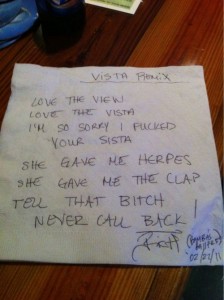 VISTA REMIX
LOVE THE VIEW
LOVE THE VISTA
I'M SO SORRY I FUCKED
YOUR SISTA
SHE GAVE ME HERPES
SHE GAVE ME THE CLAP
TELL THAT BITCH
NEVER CALL BACK!
02/21/11